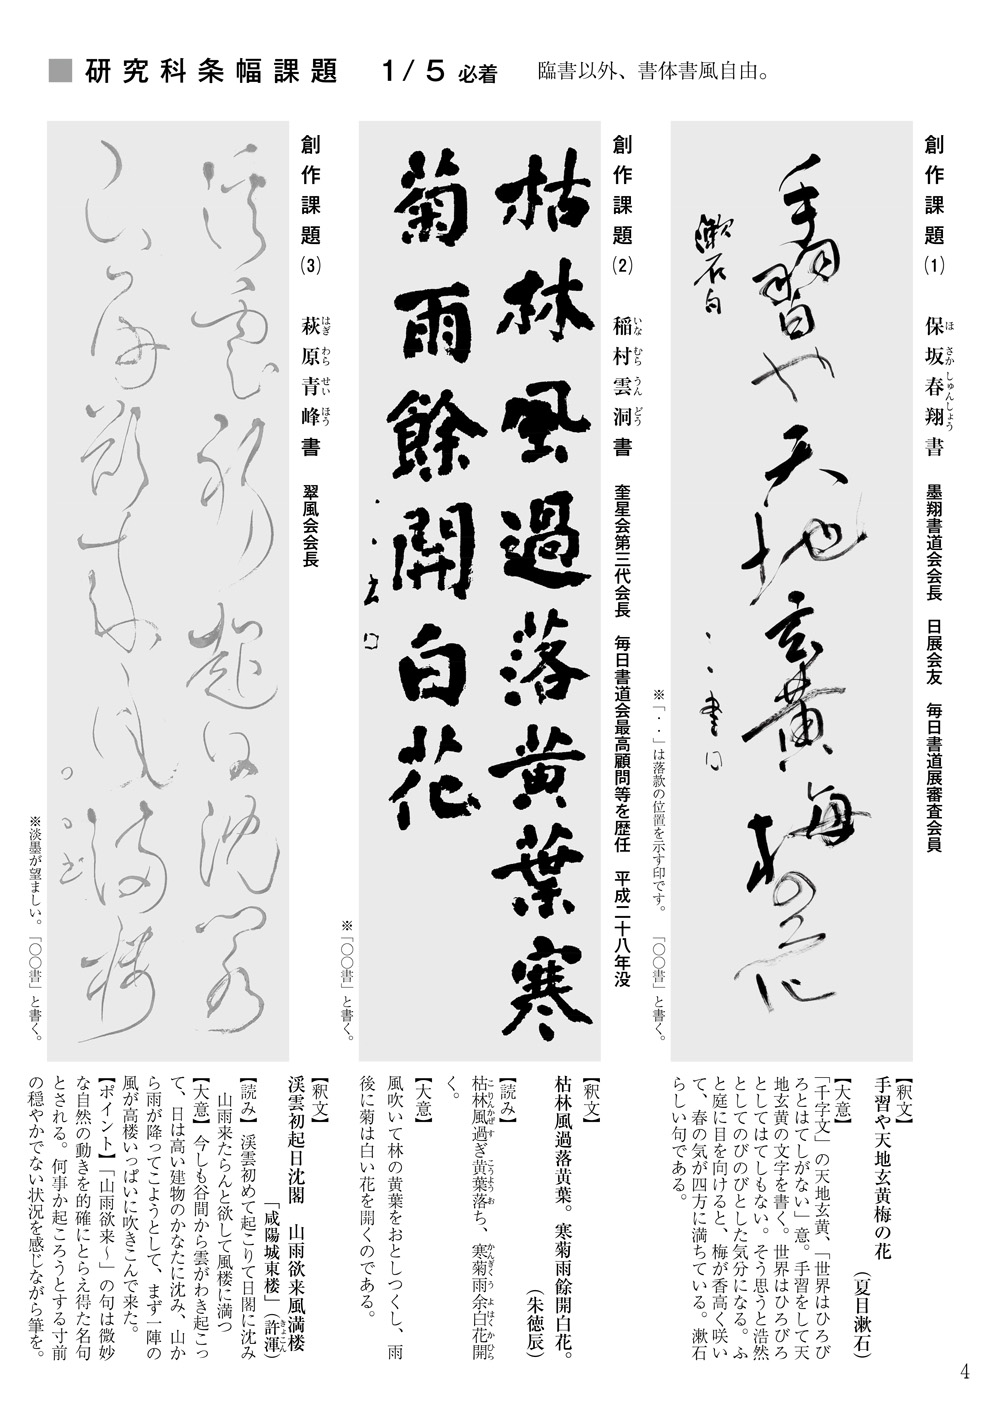 ■ 研究科条幅課題　1/5 必着　臨書以外、書体書風自由。
創作課題(1)　保坂春翔書　墨翔書道会会長　日展会友　毎日書道展審査会員
ほ さか しゅんしょう
手習や天地玄黄梅の花
漱石句
、、書
※「・・」は落款の位置を示す印です。　「〇〇書」と書く。
【釈文】
手習や天地玄黄梅の花
（夏目漱石）
【大意】
「千字文」の天地玄黄、「世界はひろび
ろとはてしがない」意。手習をして天
地玄黄の文字を書く。世界はひろびろ
としてはてしもない。そう思うと浩然
としてのびのびとした気分になる。ふ
と庭に目を向けると、梅が香高く咲い
て、春の気が四方に満ちている。漱石
らしい句である。
創作課題(2)　稲村雲洞書　奎星会第三代会長　毎日書道会最高顧問等を歴任　平成二十八年没
いな むら うん どう
枯林風過落黄葉寒
菊雨餘開白花
※「〇〇書」と書く。
【釈文】
枯林風過落黄葉。寒菊雨餘開白花。
（朱徳辰）
【読み】
枯林風過ぎ黄葉落ち、寒菊雨余白花開
こりんかぜす こうようお かんぎくう よはくか ひら
く。
【大意】
風吹いて林の黄葉をおとしつくし、雨
後に菊は白い花を開くのである。
創作課題(3)　萩原青峰書　翠風会会長
はぎ わら せい ほう
渓雲初起日沈閣
山雨欲来風満楼
※淡墨が望ましい。「〇〇書」と書く。
【釈文】
渓雲初起日沈閣　山雨欲来風満楼
「咸陽城東楼」（許渾）
きょこん
【読み】渓雲初めて起こりて日閣に沈み
山雨来たらんと欲して風楼に満つ
【大意】今しも谷間から雲がわき起こっ
て、日は高い建物のかなたに沈み、山か
ら雨が降ってこようとして、まず一陣の
風が高楼いっぱいに吹きこんで来た。
【ポイント】「山雨欲来〜」の句は微妙
な自然の動きを的確にとらえ得た名句
とされる。何事か起ころうとする寸前
の穏やかでない状況を感じながら筆を。
4